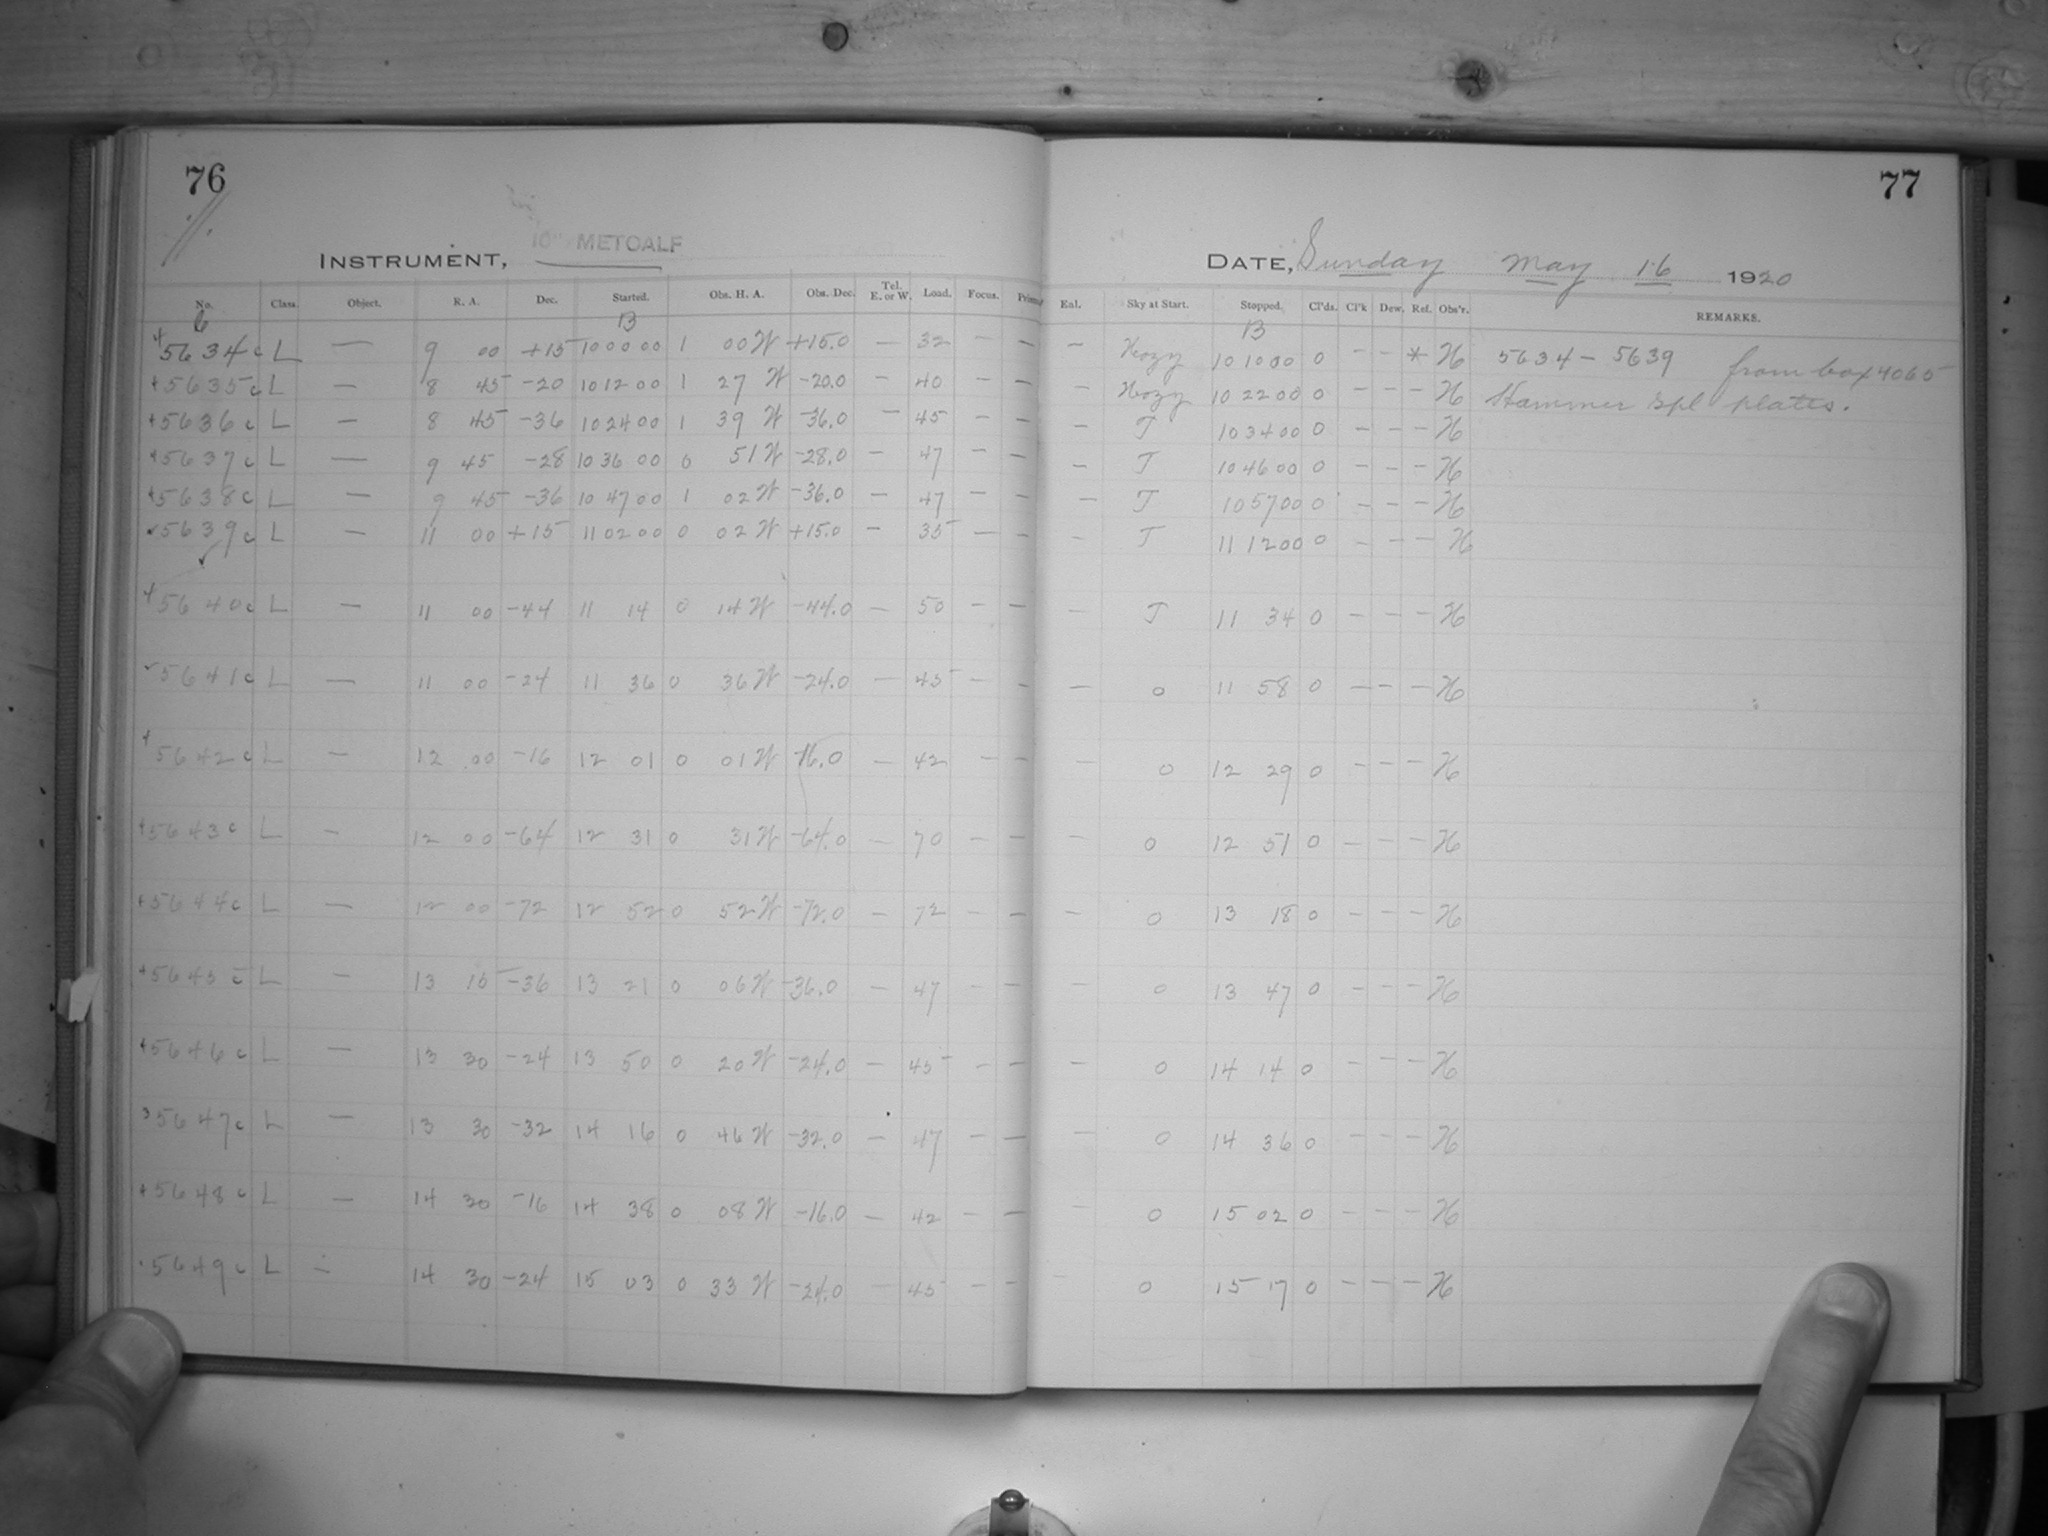 76
77
INSTRUMENT, 10" METCALF
DATE, Sunday May 16 1920
No. Class. Object. R. A. Dec. Started. Obs. H. A. Obs. Dec. Tel. E. or W. Load. Focus. Prisms Eal. Sky at Start. Stopped. Cl'ds. Cl'k Dew. Ref. Obs'r. REMARKS.
B B
5634c L — 9 00 +15 10 00 00 1 00 W +15.0 — 32 — — — Hazy 10 10 00 0 — — * H 5634 – 5639 from box 4065
5635c L — 8 45 -20 10 12 00 1 27 W -20.0 — 40 — — — Hazy 10 22 00 0 — — — H Hammer spl plates.
5636c L — 8 45 -36 10 24 00 1 39 W -36.0 — 45 — — — T 10 34 00 0 — — — H
5637c L — 9 45 -28 10 36 00 0 51 W -28.0 — 47 — — — T 10 46 00 0 — — — H
5638c L — 9 45 -36 10 47 00 1 02 W -36.0 — 47 — — — T 10 57 00 0 — — — H
5639c L — 11 00 +15 11 02 00 0 02 W +15.0 — 35 — — — T 11 12 00 0 — — — H
5640c L — 11 00 -44 11 14 0 14 W -44.0 — 50 — — — T 11 34 0 — — — H
5641c L — 11 00 -24 11 36 0 36 W -24.0 — 45 — — — 0 11 58 0 — — — H
5642c L — 12 00 -16 12 01 0 01 W -16.0 — 42 — — — 0 12 29 0 — — — H
5643c L — 12 00 -64 12 31 0 31 W -64.0 — 70 — — — 0 12 51 0 — — — H
5644c L — 12 00 -72 12 52 0 52 W -72.0 — 72 — — — 0 13 18 0 — — — H
5645c L — 13 15 -36 13 21 0 06 W -36.0 — 47 — — — 0 13 47 0 — — — H
5646c L — 13 30 -24 13 50 0 20 W -24.0 — 45 — — — 0 14 14 0 — — — H
5647c L — 13 30 -32 14 16 0 46 W -32.0 — 47 — — — 0 14 36 0 — — — H
5648c L — 14 30 -16 14 38 0 08 W -16.0 — 42 — — — 0 15 02 0 — — — H
5649c L — 14 30 -24 15 03 0 33 W -24.0 — 45 — — — 0 15 17 0 — — — H